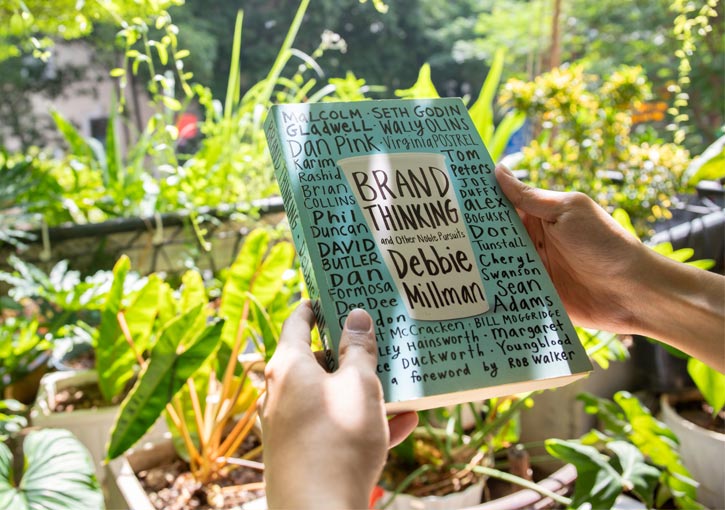 MALCOLM · SETH GODIN
GLADWELL · WALLY OLINS
DAN PINK · VIRGINIA POSTREL
KARIM
RASHID
BRIAN
COLLINS
PHIL
DUNCAN
DAVID
BUTLER
DAN
FORMOSA
DEEDEE
BRAND
THINKING
and Other Noble Pursuits
Debbie
Millman
TOM
PETERS
JOE
DUFFY
ALEX
BOGUSKY
DORI
TUNSTALL
CHERYL
SWANSON
SEAN
ADAMS
McCRACKEN · BILL MOGGRIDGE
HAINSWORTH · MARGARET
DUCKWORTH · YOUNGBLOOD
a foreword by ROB WALKER